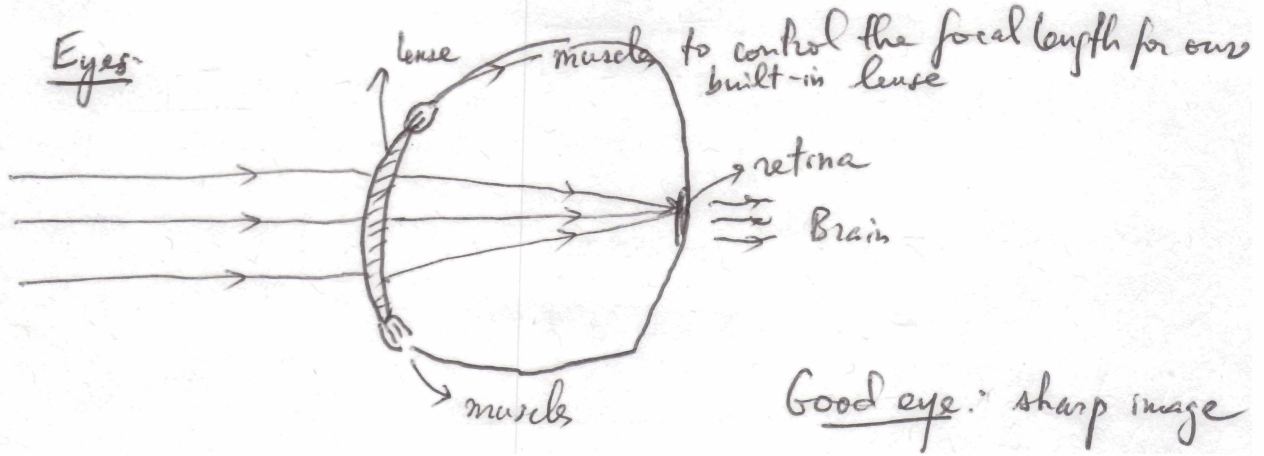 Eyes:
lense
muscles to control the focal length for our
built-in lense
retina
Brain
muscles
Good eye: sharp image